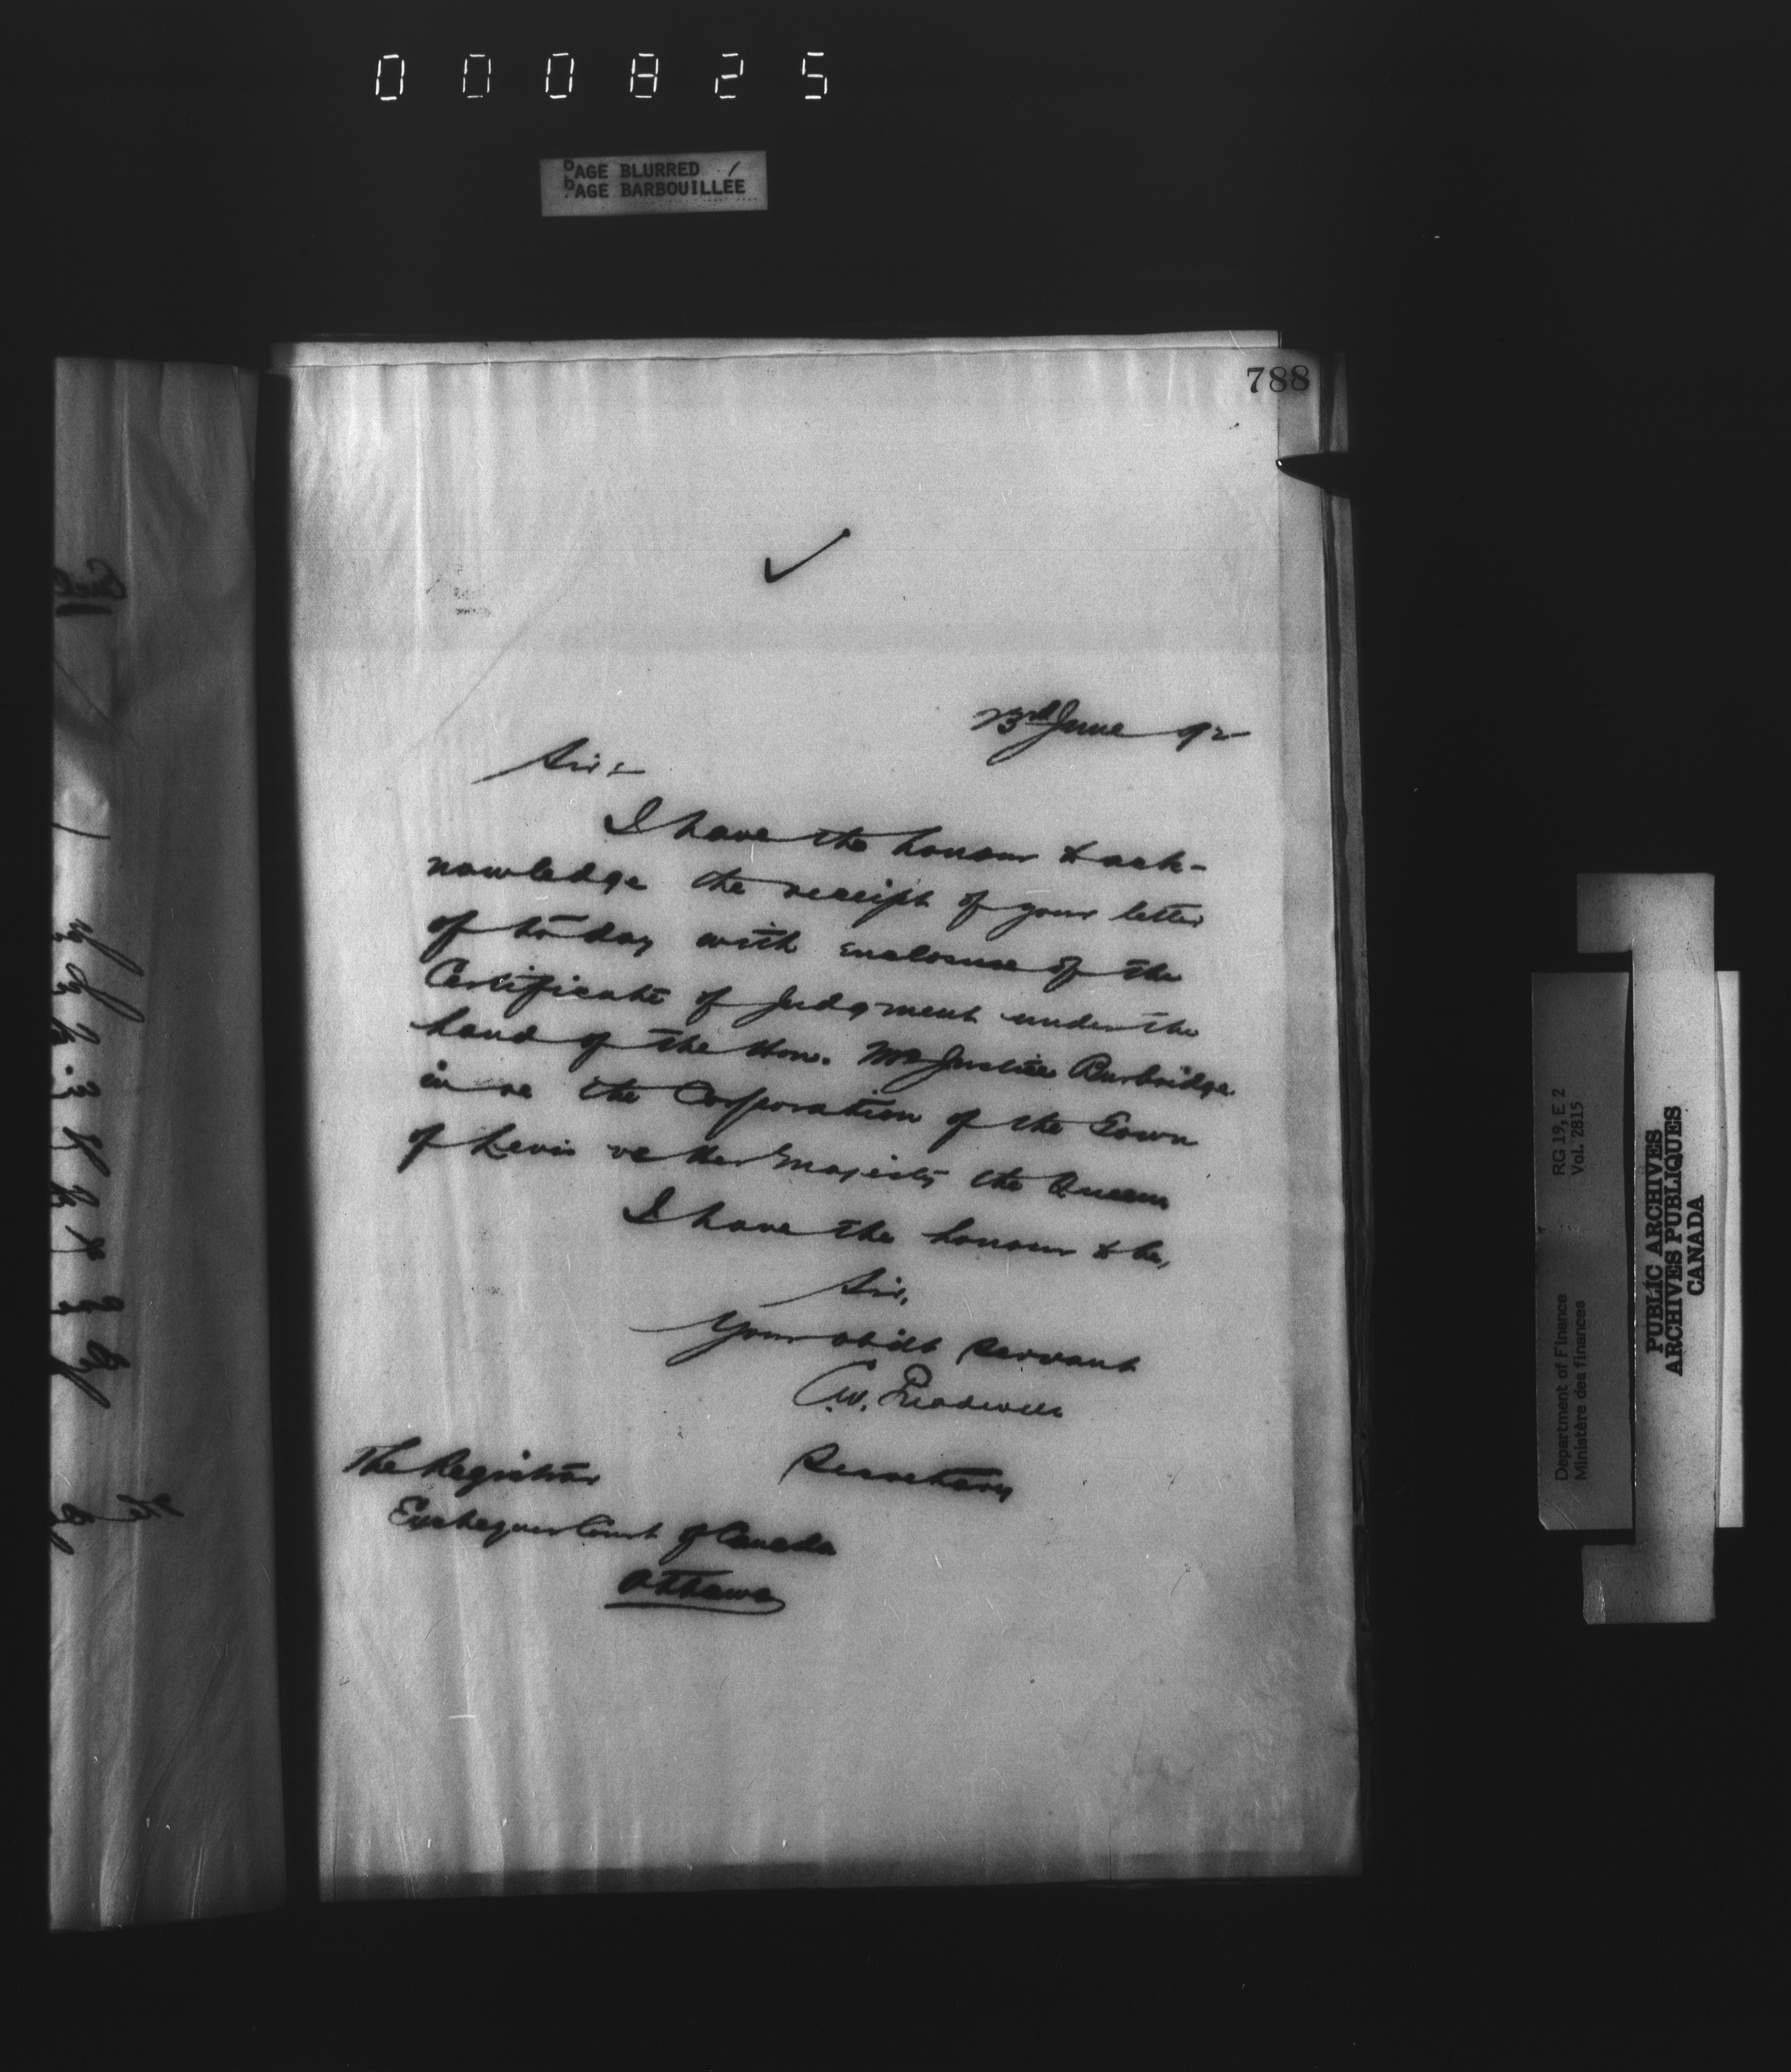 000825
PAGE BLURRED
PAGE BARBOUILLÉE
788
23rd June 92
Sir :-
I have the honour to ack-
nowledge the receipt of your letter
of to day with enclosure of the
Certificate of Judgment under the
hand of the Hon. Mr Justice Burbridge
in re the Corporation of the Town
of Levis vs Her Majesty the Queen
I have the honour to be,
Sir,
Your obdt servant
C.W. Treadwell
Secretary
The Registrar
Exchequer Court of Canada
Ottawa
Department of Finance RG 19, E 2
Ministère des finances Vol. 2815
PUBLIC ARCHIVES
ARCHIVES PUBLIQUES
CANADA